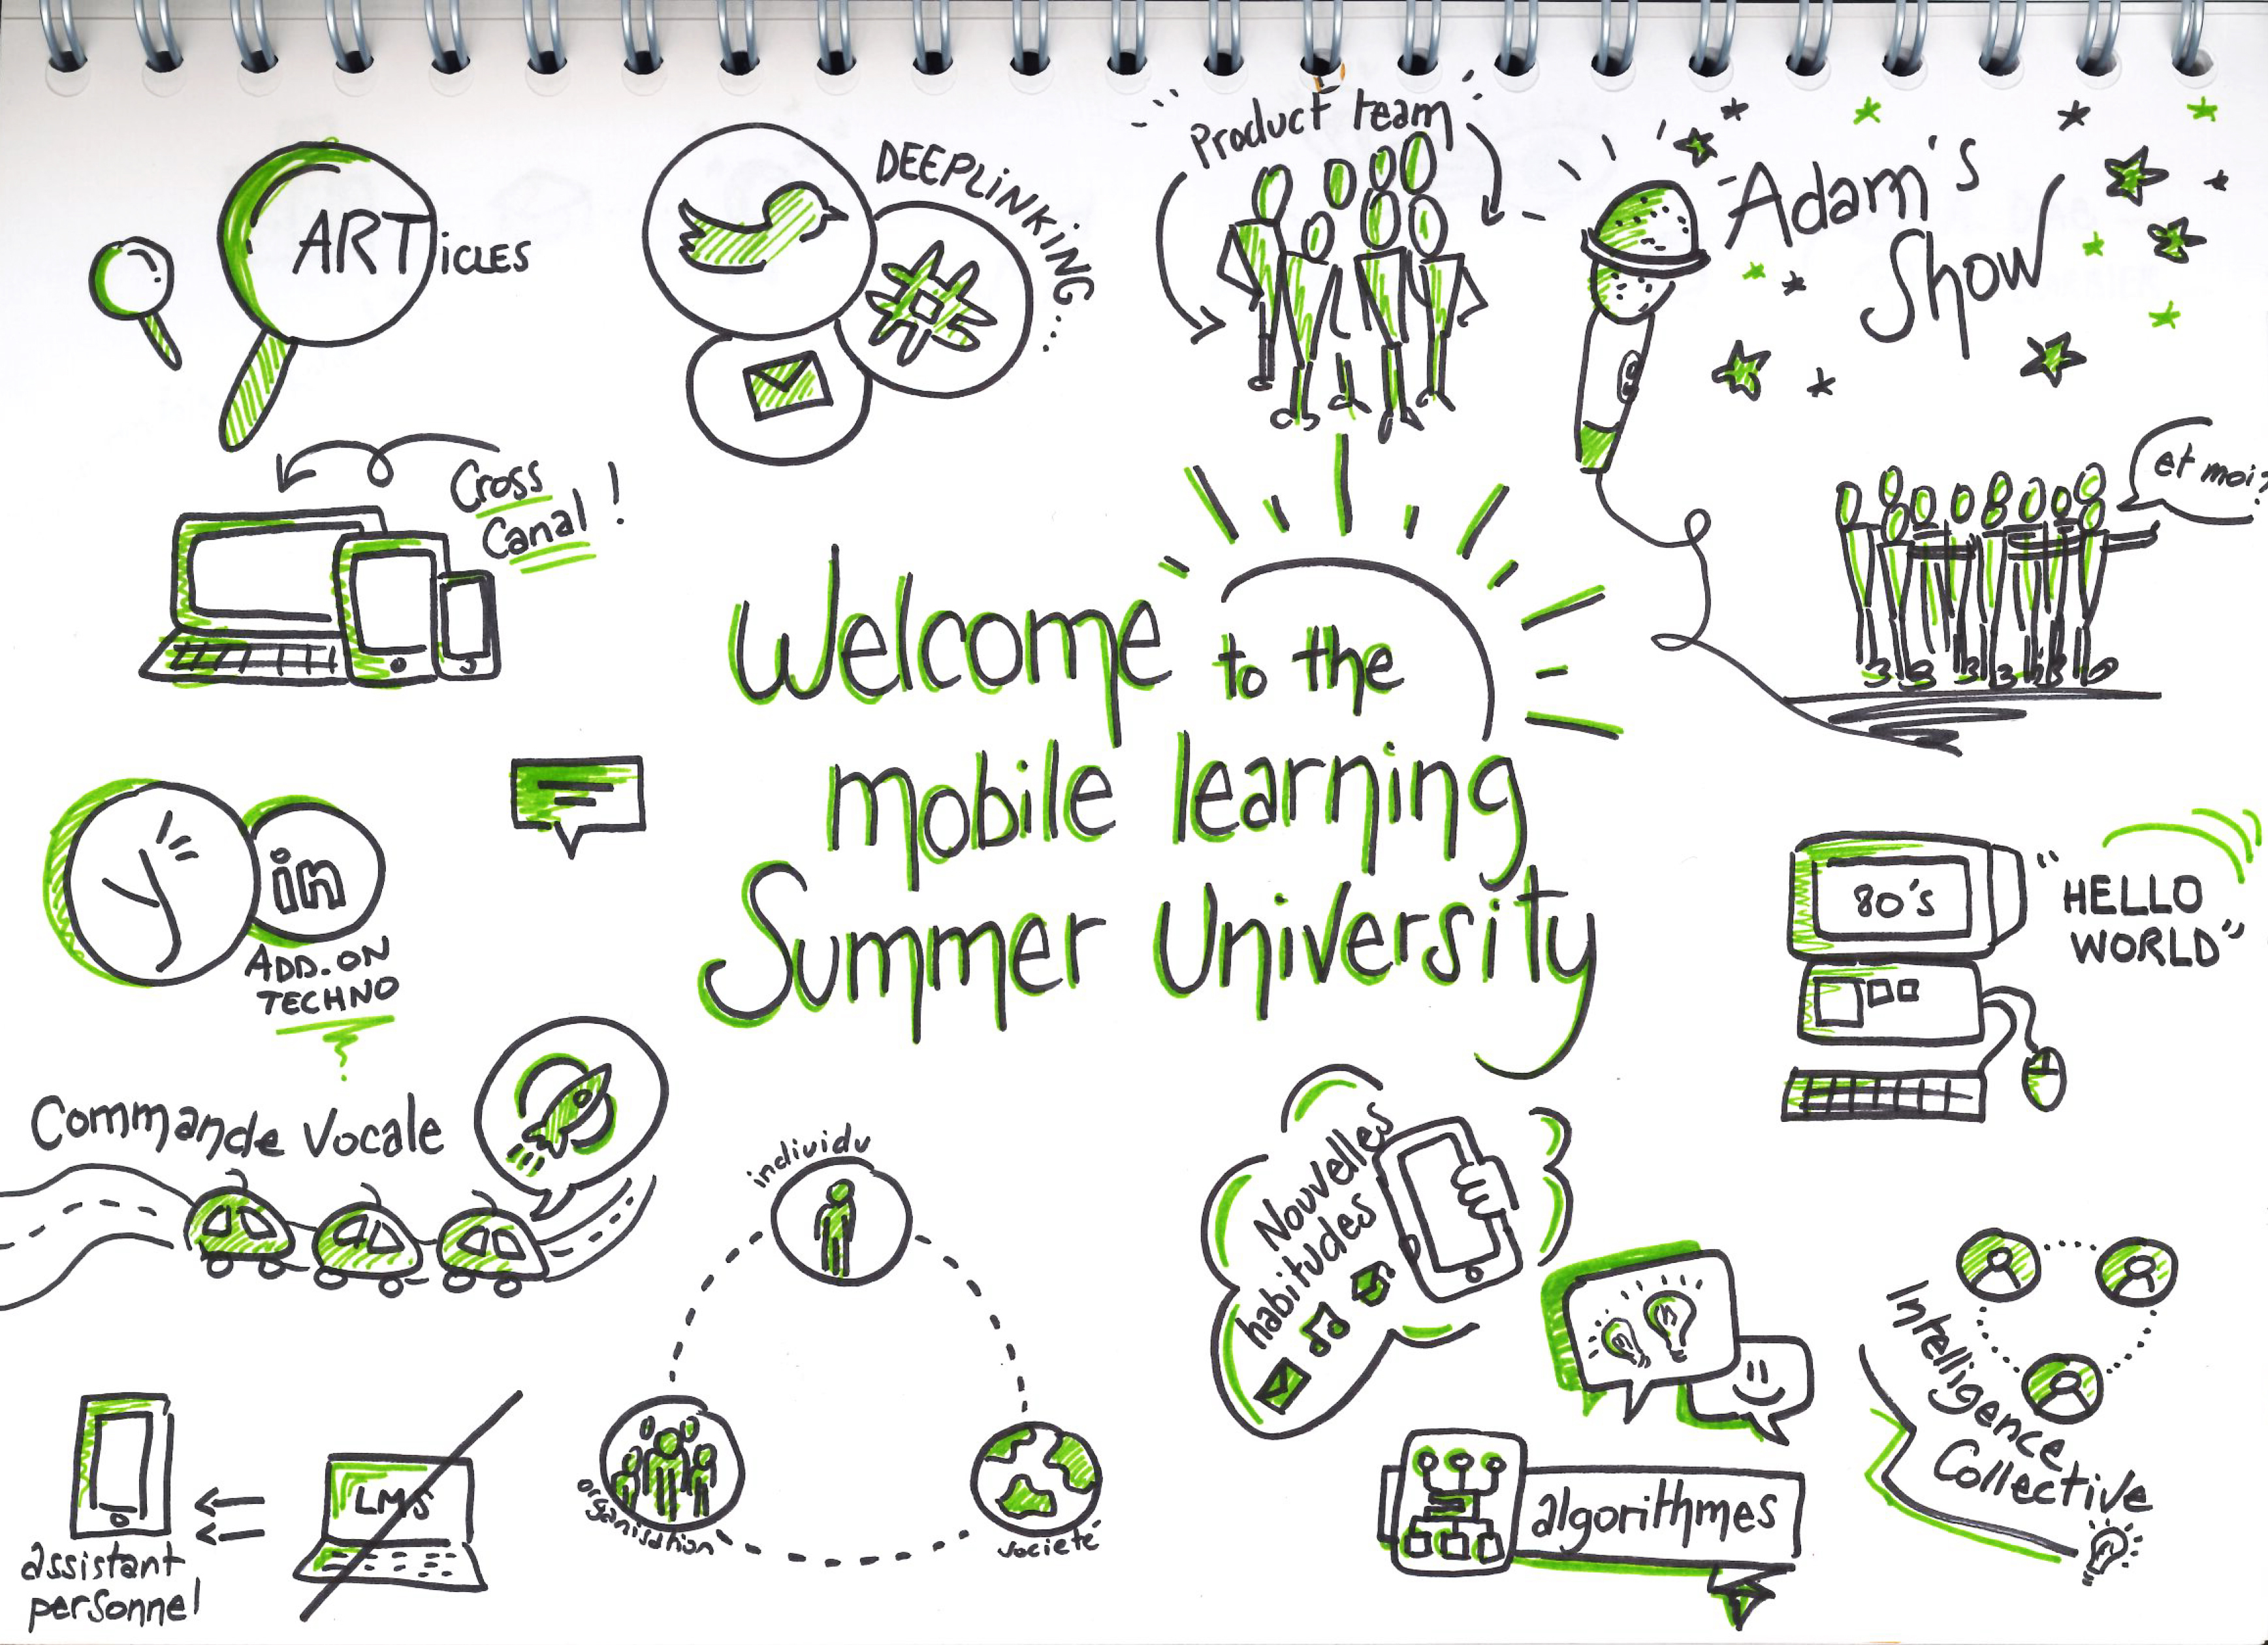 ARTicles
DEEPLINKING...
Product team
Adam's
Show
Cross
Canal !
et moi?
Welcome to the
mobile learning
Summer University
y in
ADD-ON
TECHNO
80's
"HELLO
WORLD"
Commande Vocale
individu
organisation
société
Nouvelles
habitudes
Intelligence
Collective
algorithmes
LMS
assistant
personnel